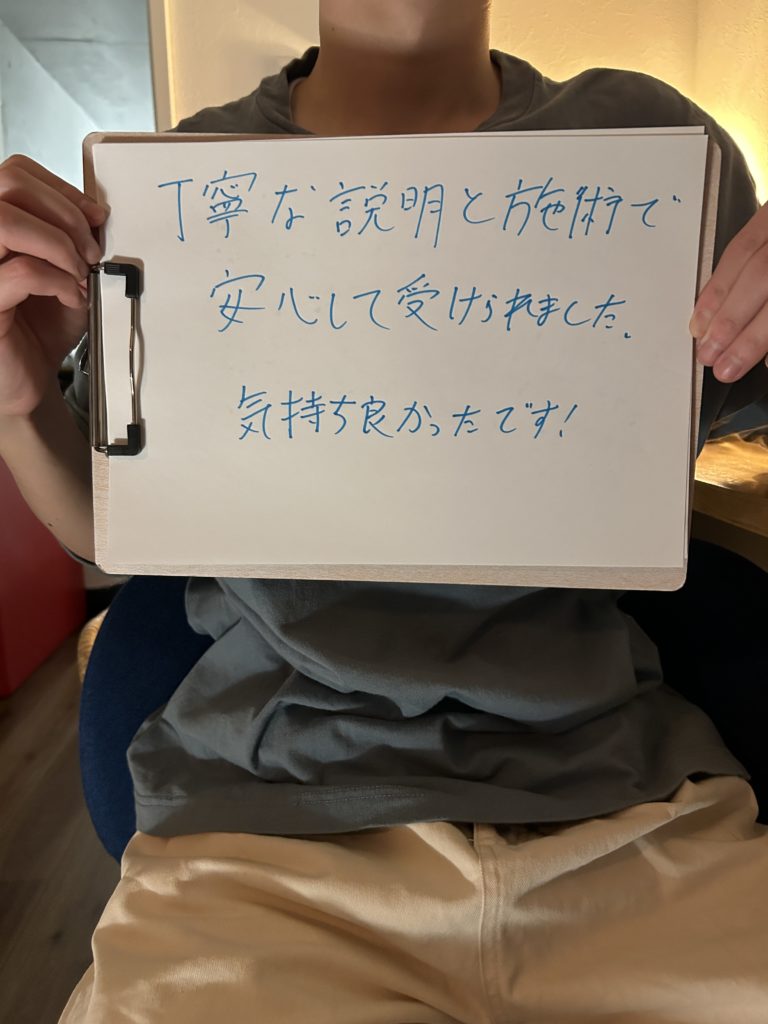 丁寧な説明と施術で
安心して受けられました。
気持ち良かったです!